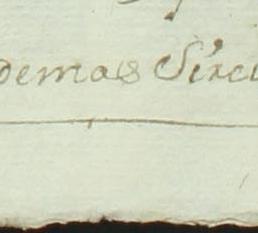 demas Circu